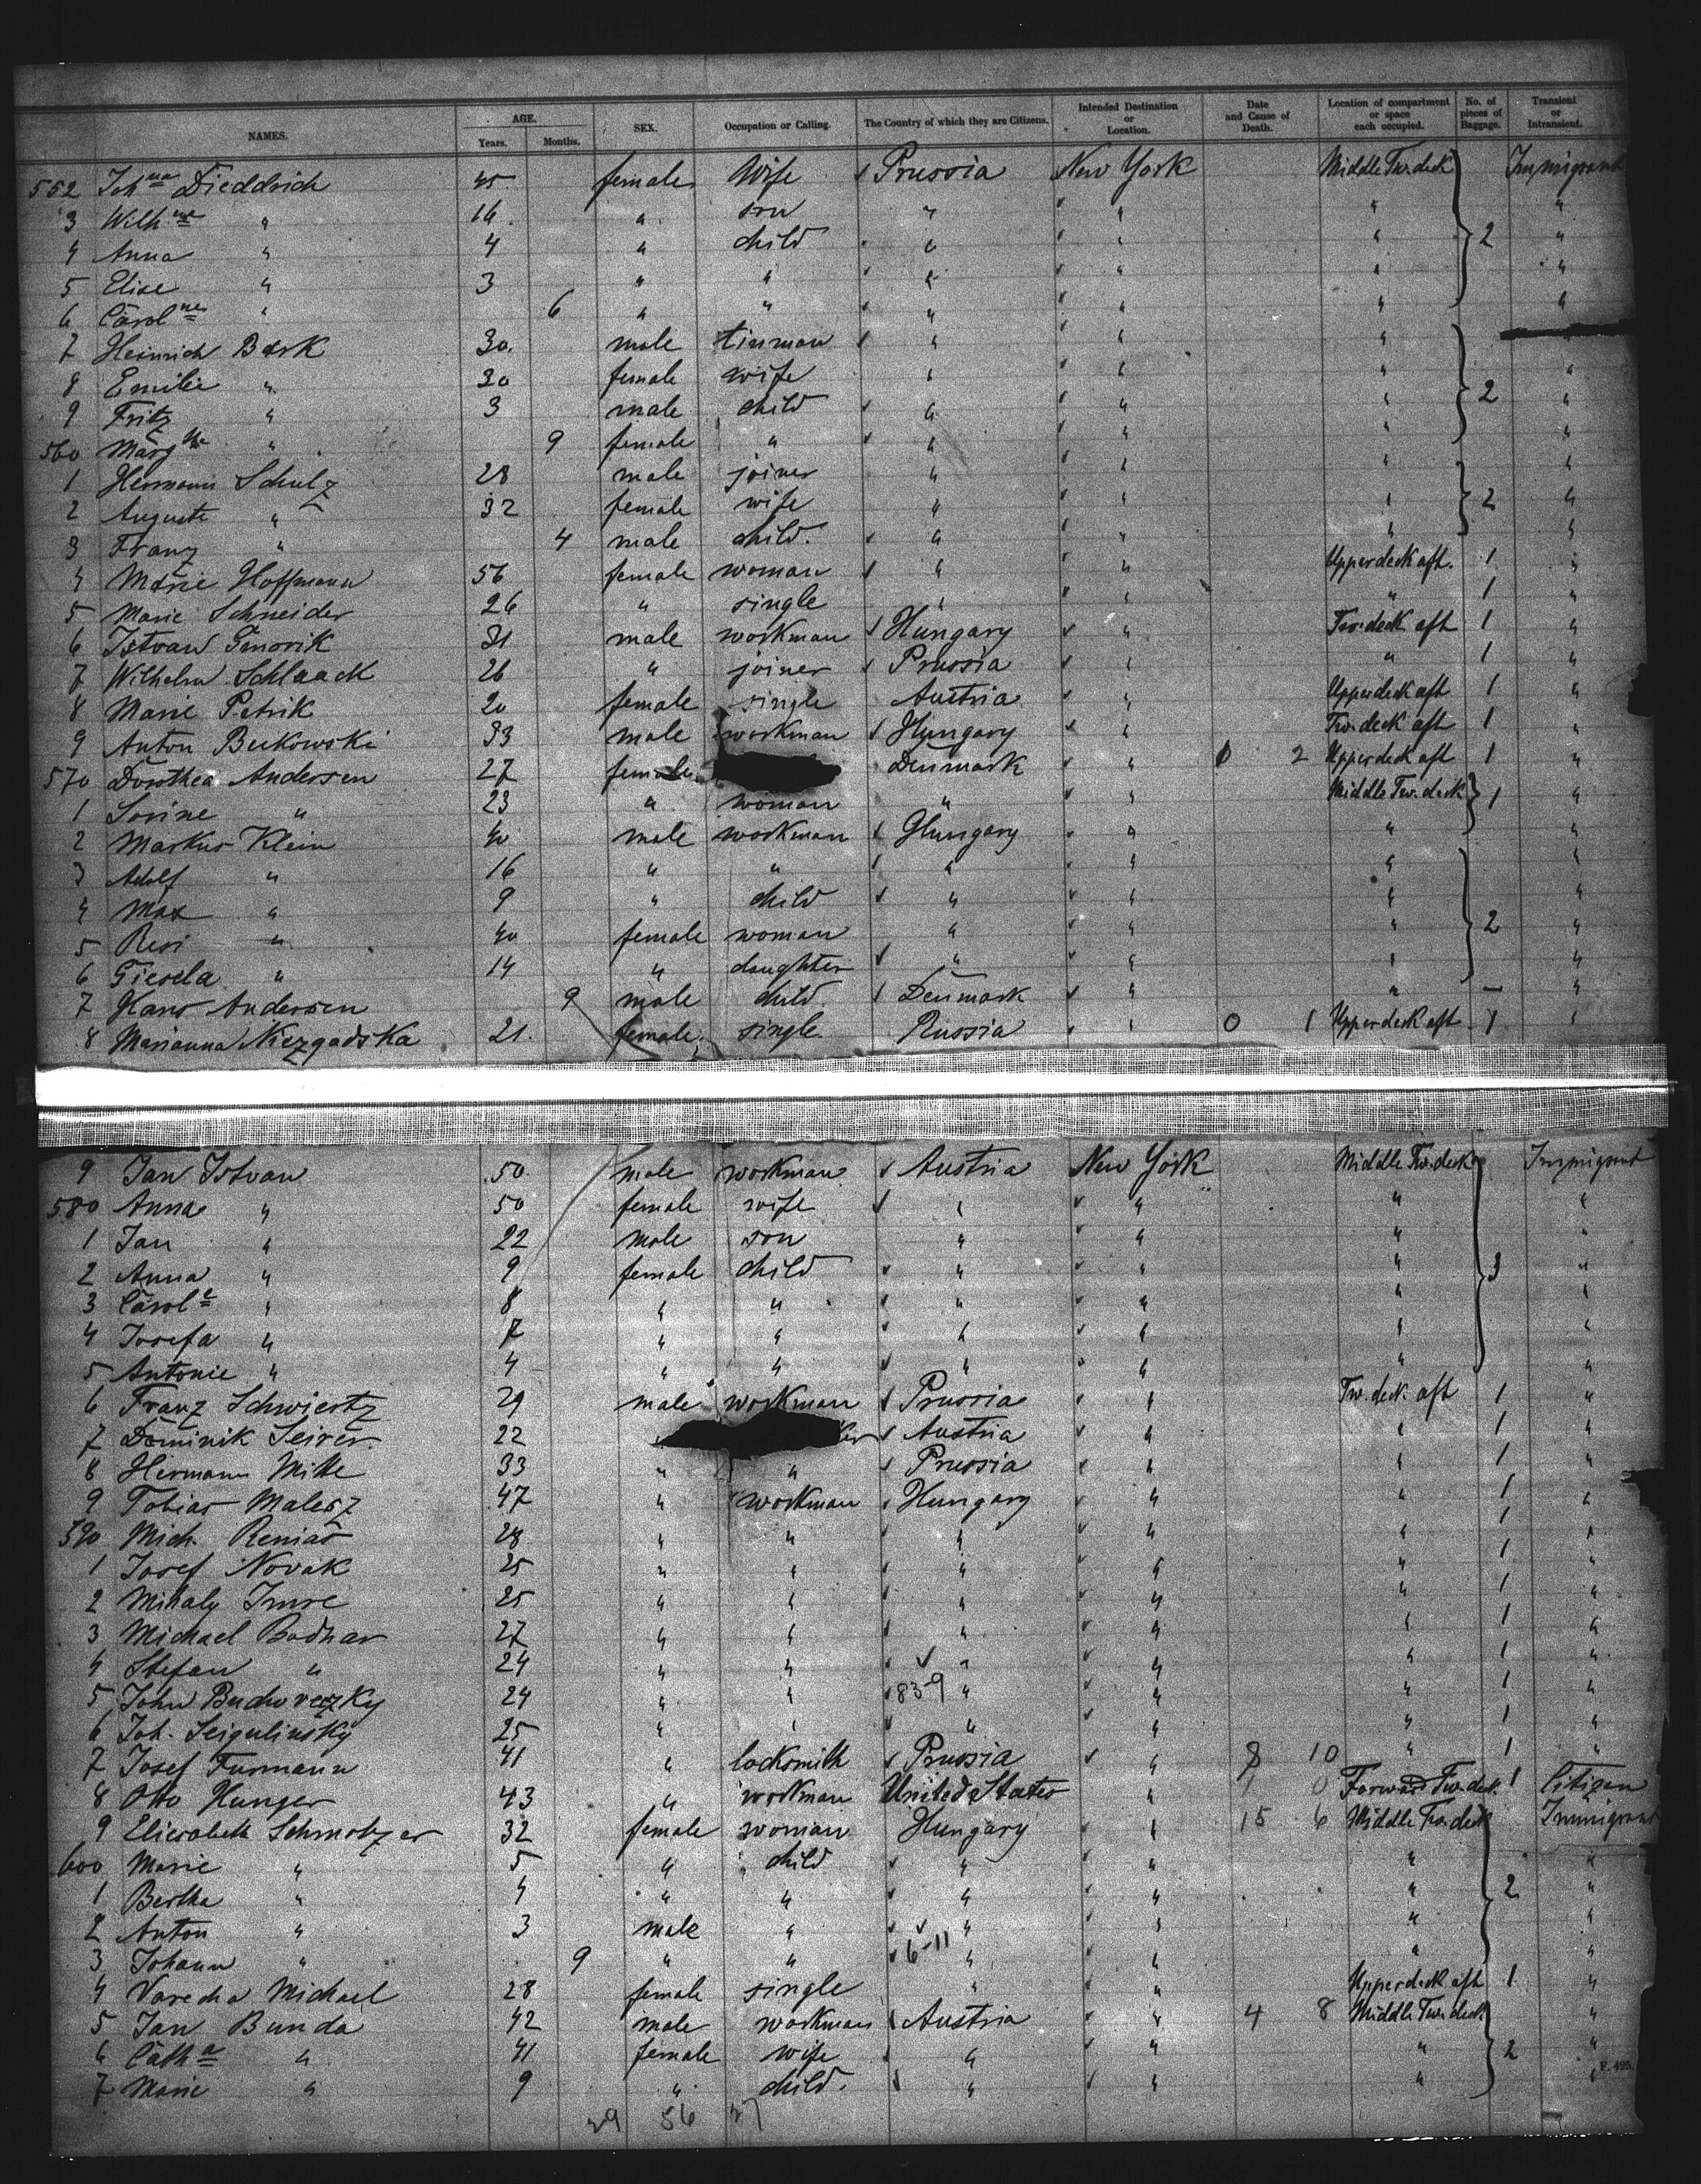 NAMES. AGE. Years. Months. SEX. Occupation or Calling. The Country of which they are Citizens. Intended Destination or Location. Date and Cause of Death. Location of compartment or space each occupied. No. of pieces of Baggage. Transient or Intransient.
552 Joh<sup>na</sup> Dieddrich 45 female Wife Prussia New York Middle Tw. deck Immigrant
3 Wilh<sup>ne</sup> " 16 " son " " " "
4 Anna " 4 " child " " " 2 "
5 Elise " 3 " " " " " "
6 Carol<sup>ne</sup> " 6 " " " " " "
7 Heinrich Bork 30 male tinman " " "
8 Emilie " 30 female wife " " " "
9 Fritz " 3 male child " " " 2 "
560 Marg " 9 female " " " " "
1 Hermann Schulz 28 male joiner " " " "
2 Auguste " 32 female wife " " " 2 "
3 Franz " 4 male child. " " " "
4 Marie Hoffmann 56 female woman " " Upper deck aft. 1 "
5 Marie Schneider 26 " single " " " 1 "
6 Istvan 31 male workman Hungary " Tw. deck aft 1 "
7 Wilhelm Schlaack 26 " joiner Prussia " " 1 "
8 Marie Petrik 20 female single Austria " Upper deck aft 1 "
9 Anton Bukowski 33 male workman Hungary " Tw. deck aft 1 "
570 Dorothea Andersen 27 female Denmark " 2 Upper deck aft 1 "
1 Sorine " 23 " woman " " Middle Tw. deck 1 "
2 Markus Klein 40 male workman Hungary " " "
3 Adolf " 16 " " " " " "
4 Max " 9 " child " " " "
5 Resi " 40 female woman " " " 2 "
6 Giesela " 14 " daughter " " " "
7 Hans Andersen 9 male child Denmark " " — "
8 Marianna Niezgadska 21. female single Russia " 0 1 Upper deck aft 1 "
9 Jan Istvan 50 male workman Austria New York Middle Tw. deck Immigrant
580 Anna " 50 female wife " " " "
1 Jan " 22 male son " " " "
2 Anna " 9 female child " " " 3 "
3 Carol<sup>e</sup> " 8 " " " " " "
4 Josefa " 7 " " " " " "
5 Antonie " 4 " " " " " "
6 Franz Schwiertz 29 male workman Prussia " Tw. deck aft 1 "
7 Dominik Seirer. 22 Austria " " 1 "
8 Hermann Mitte 33 " " Prussia " " 1 "
9 Tobias Malesz 47 " workman Hungary " " 1 "
590 Mich. 28 " " " " " 1 "
1 Josef Novak 25 " " " " " 1 "
2 Mihaly Imre 25 " " " " " 1 "
3 Michael Bodnar 27 " " " " " 1 "
4 Stefan " 24 " " " " " 1 "
5 John Buchoveczky 24 " " 83-9 " " " 1 "
6 Joh. Seigulinsky 25 " " " " " 1 "
7 Josef Furmann 41 " locksmith Prussia " 8 10 " 1 "
8 Otto Hunger 43 " workman United States " 1 0 Forward Tw. deck. 1 Citizen
9 Eliesabeth Schmotzer 32 female woman Hungary " 15 6 Middle Tw. deck Immigrant
600 Marie " 5 " child " " " "
1 Bertha " 4 " " " " " 2 "
2 Anton " 3 male " " " " "
3 Johann " 9 " " 6-11 " " " "
4 Varecha Michael 28 female single " " Upper deck aft 1 "
5 Jan Bunda 42 male workman Austria " 4 8 Middle Tw. deck "
6 Cath<sup>a</sup> " 41 female wife " " " 2 "
7 Marie " 9 " child. " " " "
29 56 27